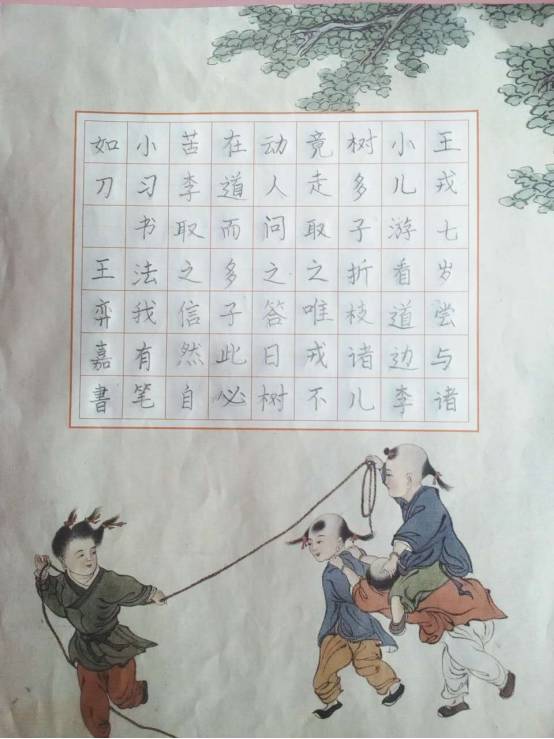 王戎七岁尝与诸
小儿游看道边李
树多子折枝诸儿
竟走取之唯戎不
动人问之答曰树
在道而多子此必
苦李取之信然自
小习书法我有笔
如刀 王弈嘉書